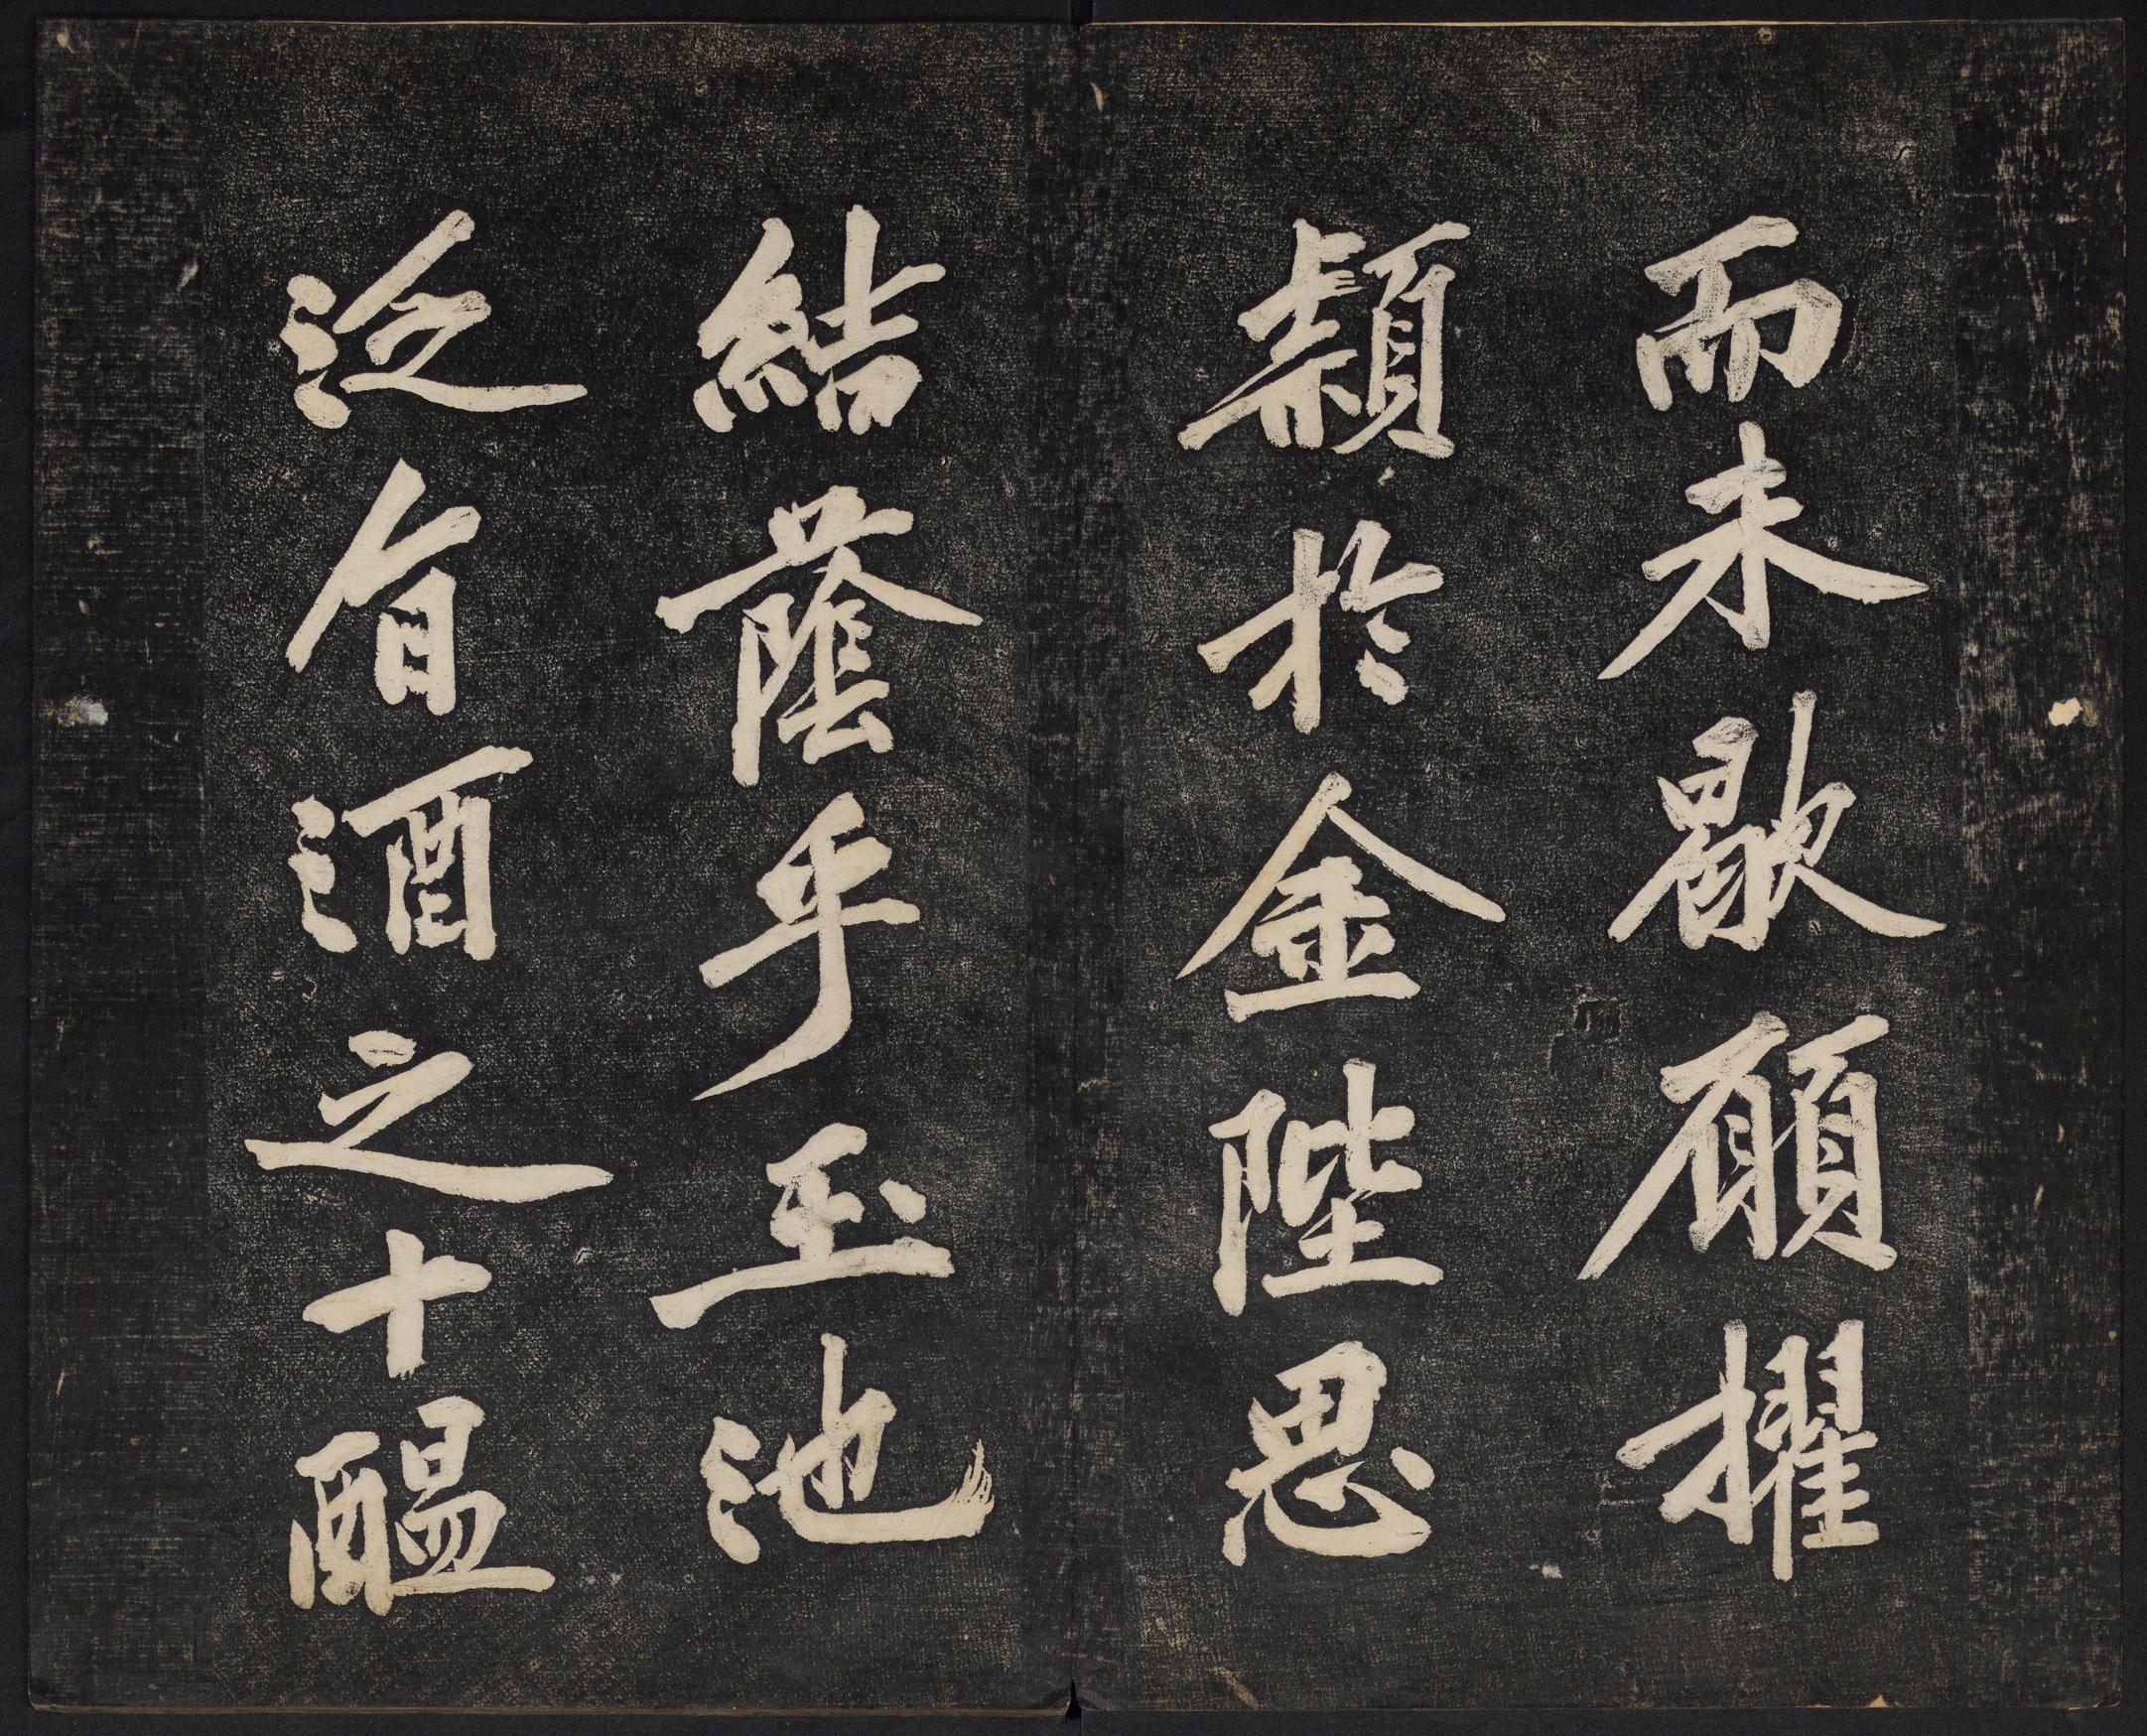 而未歇願擢
穎於金陛思
結蔭乎玉池
泛旨酒之十醞